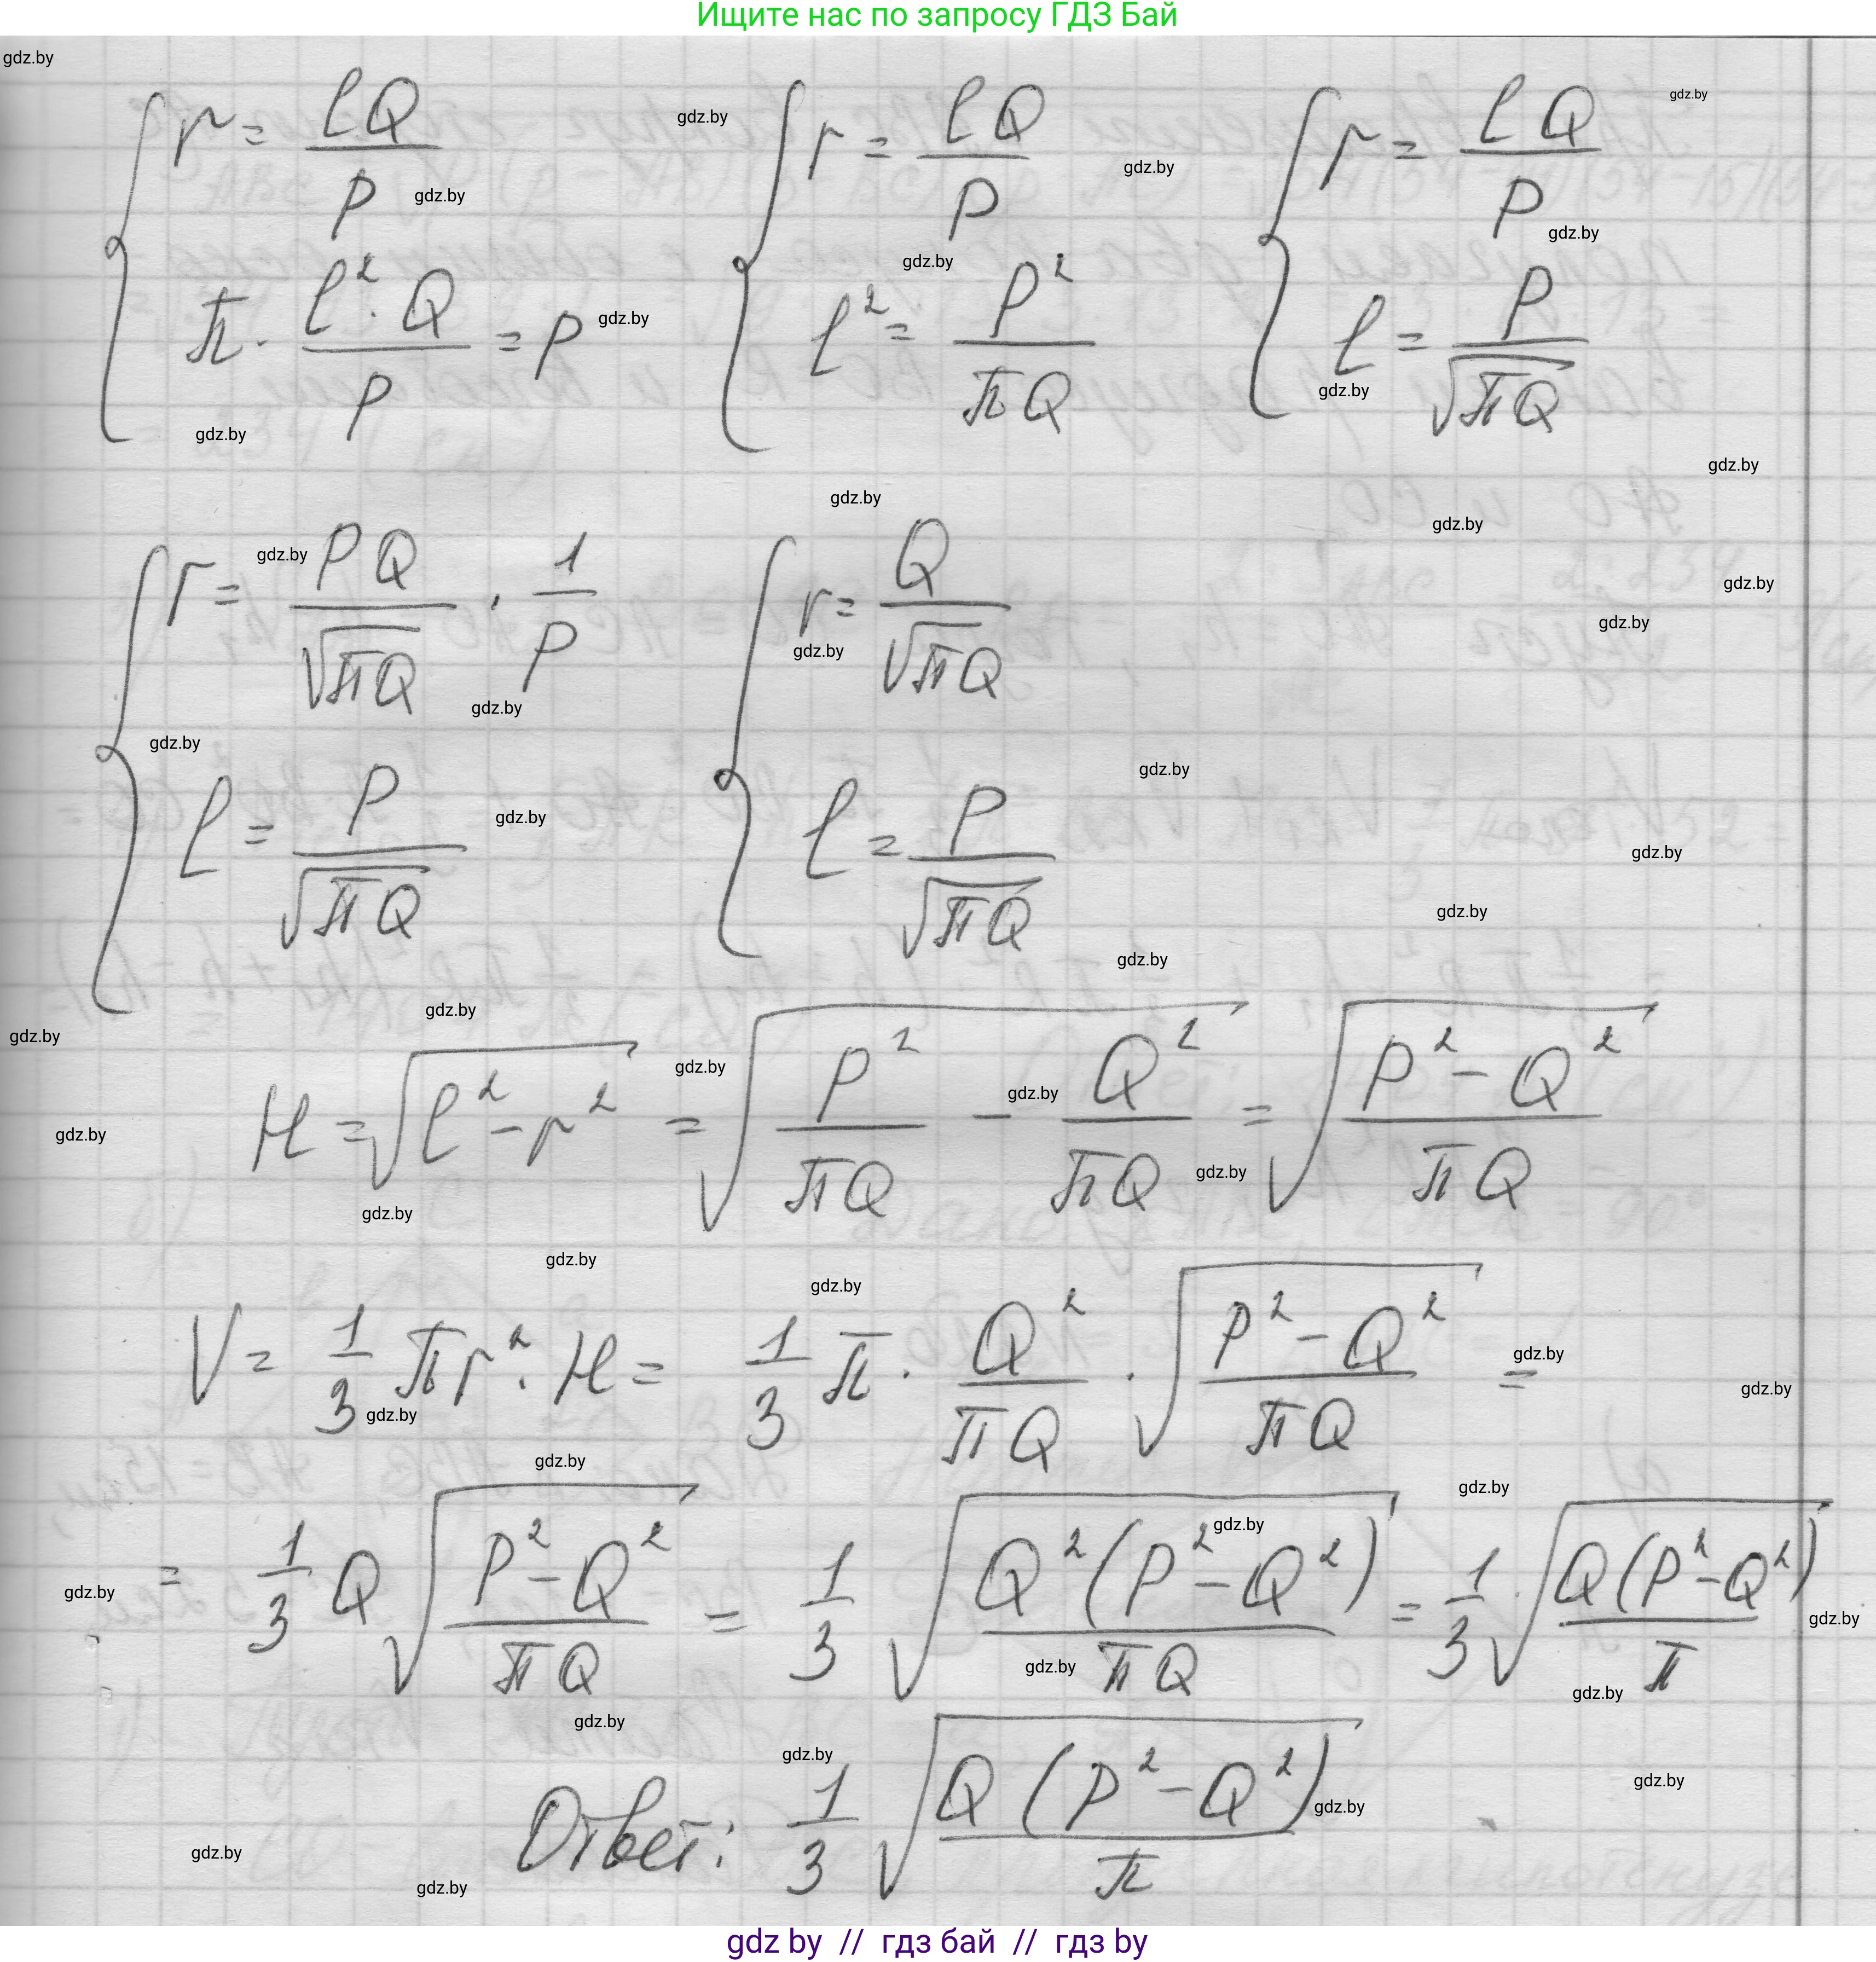 Ищите нас по запросу ГДЗ Бай
{ r = lQ/P
π · l²·Q/P = P
{ r = lQ/P
l² = P²/πQ
{ r = lQ/P
l = P/√πQ
{ r = PQ/√πQ · 1/P
l = P/√πQ
{ r = Q/√πQ
l = P/√πQ
H = √(l² − r²) = √(P²/πQ − Q²/πQ) = √((P² − Q²)/πQ)
V = 1/3 πr² · H = 1/3 π · Q²/πQ · √((P² − Q²)/πQ) =
= 1/3 Q √((P² − Q²)/πQ) = 1/3 √(Q²(P² − Q²)/πQ) = 1/3 √(Q(P² − Q²)/π)
Ответ: 1/3 √(Q(P² − Q²)/π)
gdz by // гдз бай // гдз by